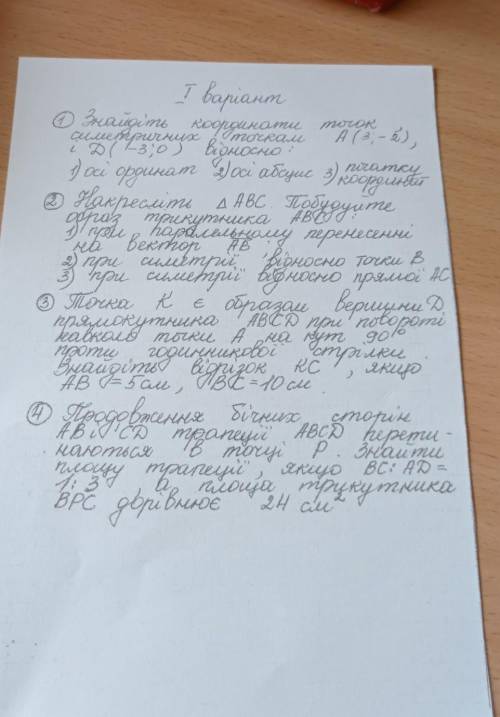 I варіант
① Знайдіть координати точок
симетричних точкам А (3;-2),
і D(-3;0) відносно:
1) осі ординат 2) осі абсцис 3) початку
координат
② Накресліть △ABC. Побудуйте
образ трикутника ABC:
1) при паралельному перенесенні
на вектор AB;
2) при симетрії відносно точки B
3) при симетрії відносно прямої AC
③ Точка K є образом вершини D
прямокутника ABCD при повороті
навколо точки A на кут 90°
проти годинникової стрілки.
Знайдіть відрізок KC, якщо
AB = 5см, BC = 10см
④ Продовження бічних сторін
AB і CD трапеції ABCD перети-
наються в точці P. Знайти
площу трапеції, якщо BC:AD=
1:3, а площа трикутника
BPC дорівнює 24 см²